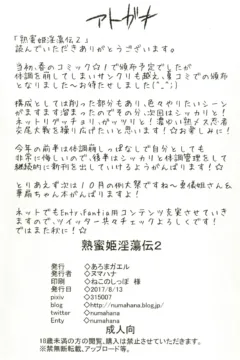 アトガキ
『熟蜜姫淫蕩伝2』
読んでいただきありがとうございます。
当初、春のコミック☆1で頒布予定でしたが
体調を崩してしまいサンクリも越え、夏コミでの頒布
となりました～お待たせしました(^_^;)
構成としては削った部分もあり、色々やりたいシーン
がまずまず溜まったのでその分、次回はシッカリと!
ネットリグッチョリ、ガッツリと!濃ゆい熟メス忍者
交尾大戦を繰り広げたいと思います!☆お楽しみに!
今年の前半は体調崩しっぱなしで自分としても
非常に悔しいので、後半はシッカリと体調管理をして
継続的に新刊を出していけるようがんばります!☆
とりあえず次は10月の例大祭ですね～
華扇ちゃん本がんばりますよ!
ネットでもEnty、Fantia用コンテンツを充実させていき
ますので、ツイッター共々チェックよろしくです!
ではまた秋に!☆
熟蜜姫淫蕩伝2
発行 ◇あろまガエル
発行者 ◇ヌマハナ
印刷 ◇ねこのしっぽ 様
発行日 ◇2017/8/13
pixiv ◇315007
blog ◇http://numahana.blog.jp/
twitter ◇numahana
Enty ◇numahana
成人向
18歳未満の方の閲覧、購入は禁止させていただきます。
※禁無断転載、アップロード等。